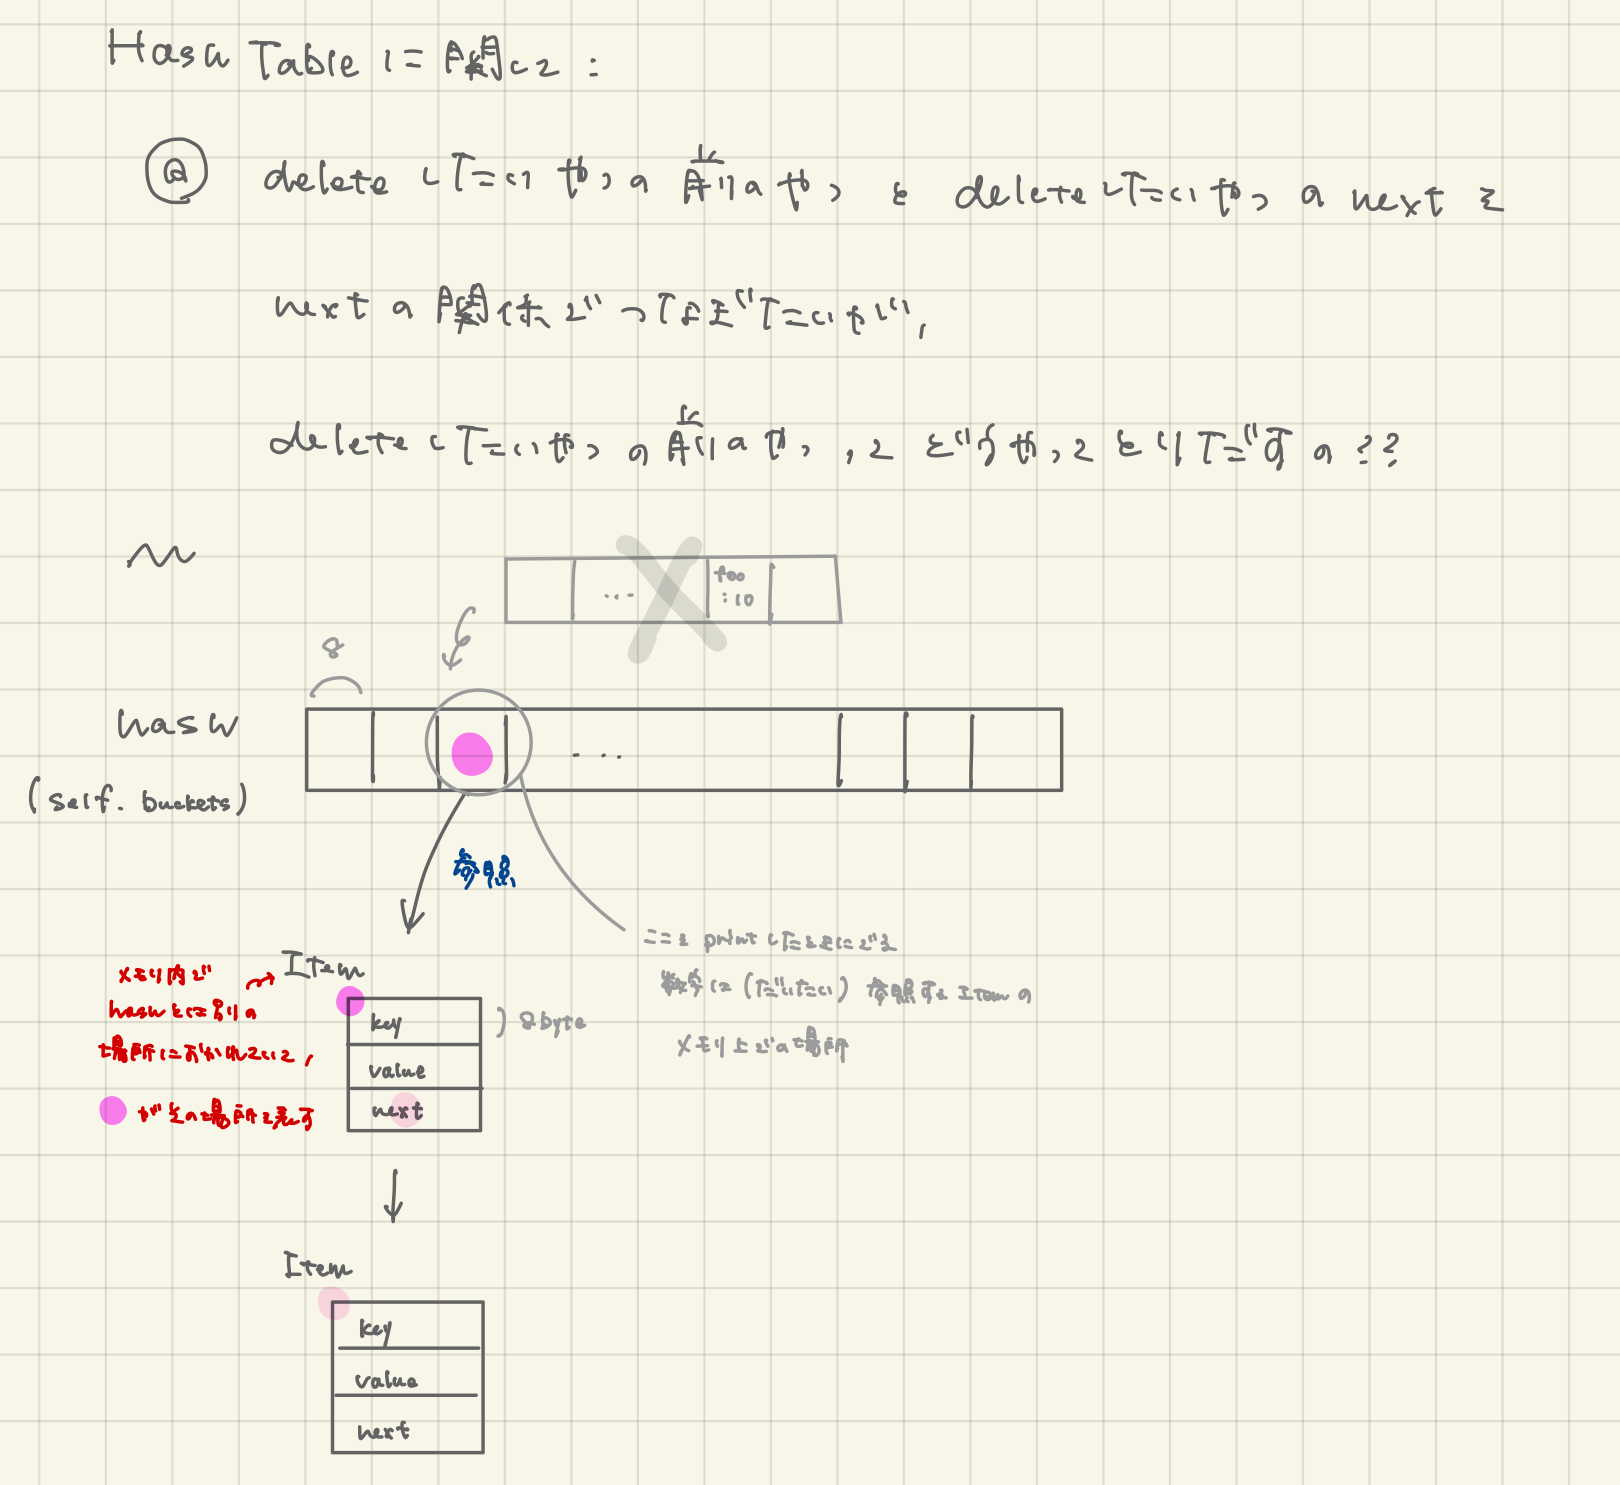 Hash Table に関して :
Q delete したいやつの前のやつ と deleteしたいやつ の next を
next の 関係で つなぎたいが,
delete したいやつ の前のやつ ,て どうやって とりだすの ??
foo
... :10
8
hash ...
(self. buckets)
参照
ここを print したときにでる
数字は (だいたい) 参照する Item の
メモリ上での場所
メモリ内で
hashとは別の
場所におかれていて,
がその場所を表す
Item
key
8byte
value
next
Item
key
value
next